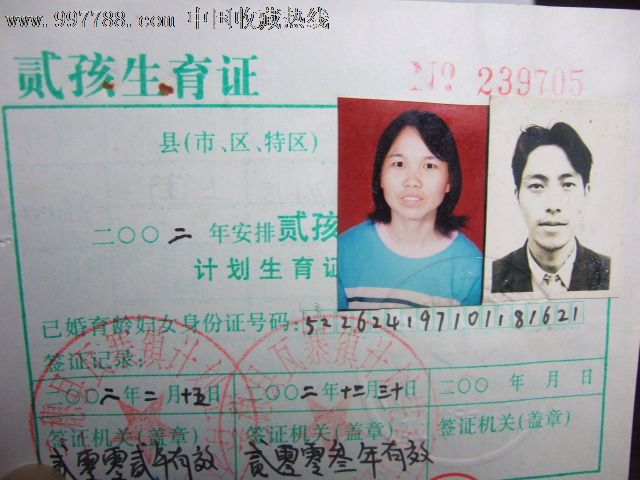 www.997788.com 中国收藏热线
贰孩生育证
No 239705
县(市、区、特区)
二〇〇二年安排贰孩
计划生育证
已婚育龄妇女身份证号码:522624197101181621
签证记录:
二〇〇二年二月十五日 二〇〇二年十二月三十日 二〇〇 年 月 日
签证机关(盖章) 签证机关(盖章) 签证机关(盖章)
贰零零贰年有效 贰零零叁年有效